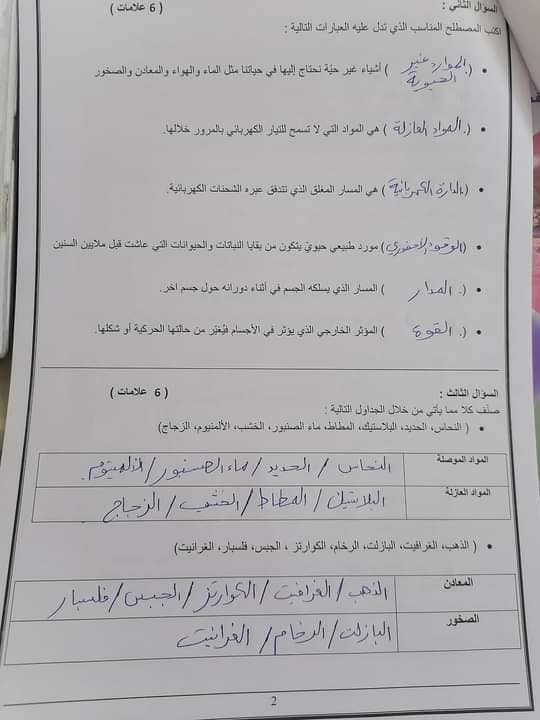 السؤال الثاني : ( 6 علامات )
اكتب المصطلح المناسب الذي تدل عليه العبارات التالية :
• (. الموارد غير الحيوية ) أشياء غير حيّة نحتاج إليها في حياتنا مثل الماء والهواء والمعادن والصخور
• (. المواد العازلة ) هي المواد التي لا تسمح للتيار الكهربائي بالمرور خلالها.
• (الدارة الكهربائية ) هي المسار المغلق الذي تتدفق عبره الشحنات الكهربائية.
• (الوقود الاحفوري) مورد طبيعي حيويّ يتكون من بقايا النباتات والحيوانات التي عاشت قبل ملايين السنين
• (. المدار ) المسار الذي يسلكه الجسم في أثناء دورانه حول جسم اخر.
• (. القوة ) المؤثر الخارجي الذي يؤثر في الأجسام فيُغيّر من حالتها الحركية أو شكلها.
السؤال الثالث : ( 6 علامات )
صنّف كلا مما يأتي من خلال الجداول التالية :
• ( النحاس، الحديد، البلاستيك، المطاط، ماء الصنبور، الخشب، الألمنيوم، الزجاج)
المواد الموصلة النحاس / الحديد / ماء الصنبور /
المواد العازلة / المطاط / الخشب / الزجاج
• ( الذهب، الغرافيت، البازلت، الرخام، الكوارتز ، الجبس، فلسبار، الغرانيت)
المعادن الذهب / الغرافيت / الكوارتز / الجبس / فلسبار
الصخور البازلت / الرخام / الغرانيت
2